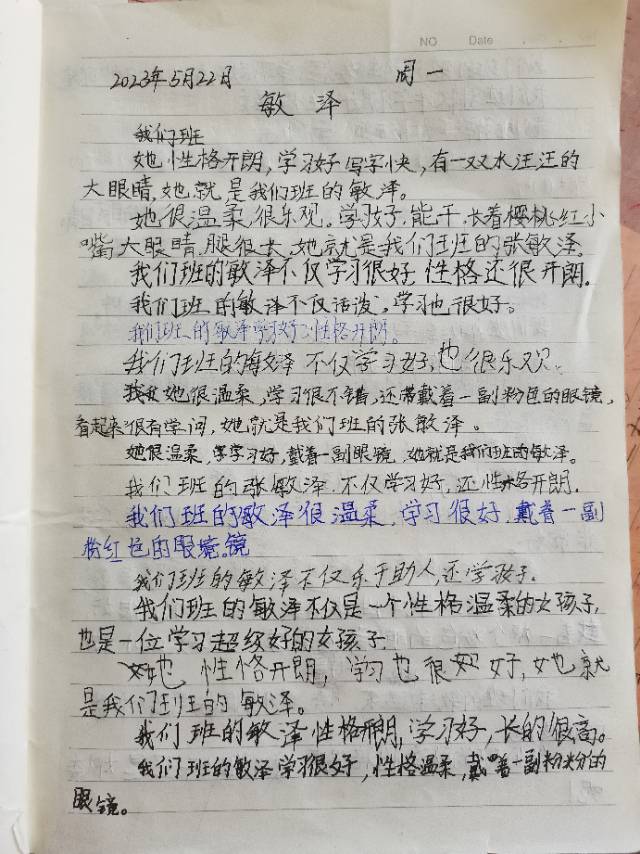 NO Date
2023年5月22日 周一
敏泽
我们班
她性格开朗,学习好写字快,有一双水汪汪的
大眼睛,她就是我们班的敏泽。
她很温柔,很乐观。学习好,能干,长着樱桃红小
嘴大眼睛,腿很长,她就是我们班的张敏泽。
我们班的敏泽不仅学习很好,性格还很开朗.
我们班的敏泽不仅活泼,学习也很好。
我们班的敏泽学习好,性格开朗。
我们班的敏泽不仅学习好,也很乐观.
她很温柔,学习很不错,还带戴着一副粉色的眼镜,
看起来很有学问,她就是我们班的张敏泽。
她很温柔,学学习好,戴着一副眼镜,她就是我们班的敏泽。
我们班的张敏泽,不仅学习好,还性格开朗.
我们班的敏泽很温柔,学习很好,戴着一副
粉红色的眼镜.镜
我们班的敏泽不仅乐于助人,还学习好.
我们班的敏泽不仅是一个性格温柔的女孩子,
也是一位学习超级好的女孩子.
她性格开朗,学习也很好,她就
是我们班的敏泽。
我们班的敏泽性格开朗,学习好,长的很高。
我们班的敏泽学习很好,性格温柔,戴着一副粉粉的
眼镜。